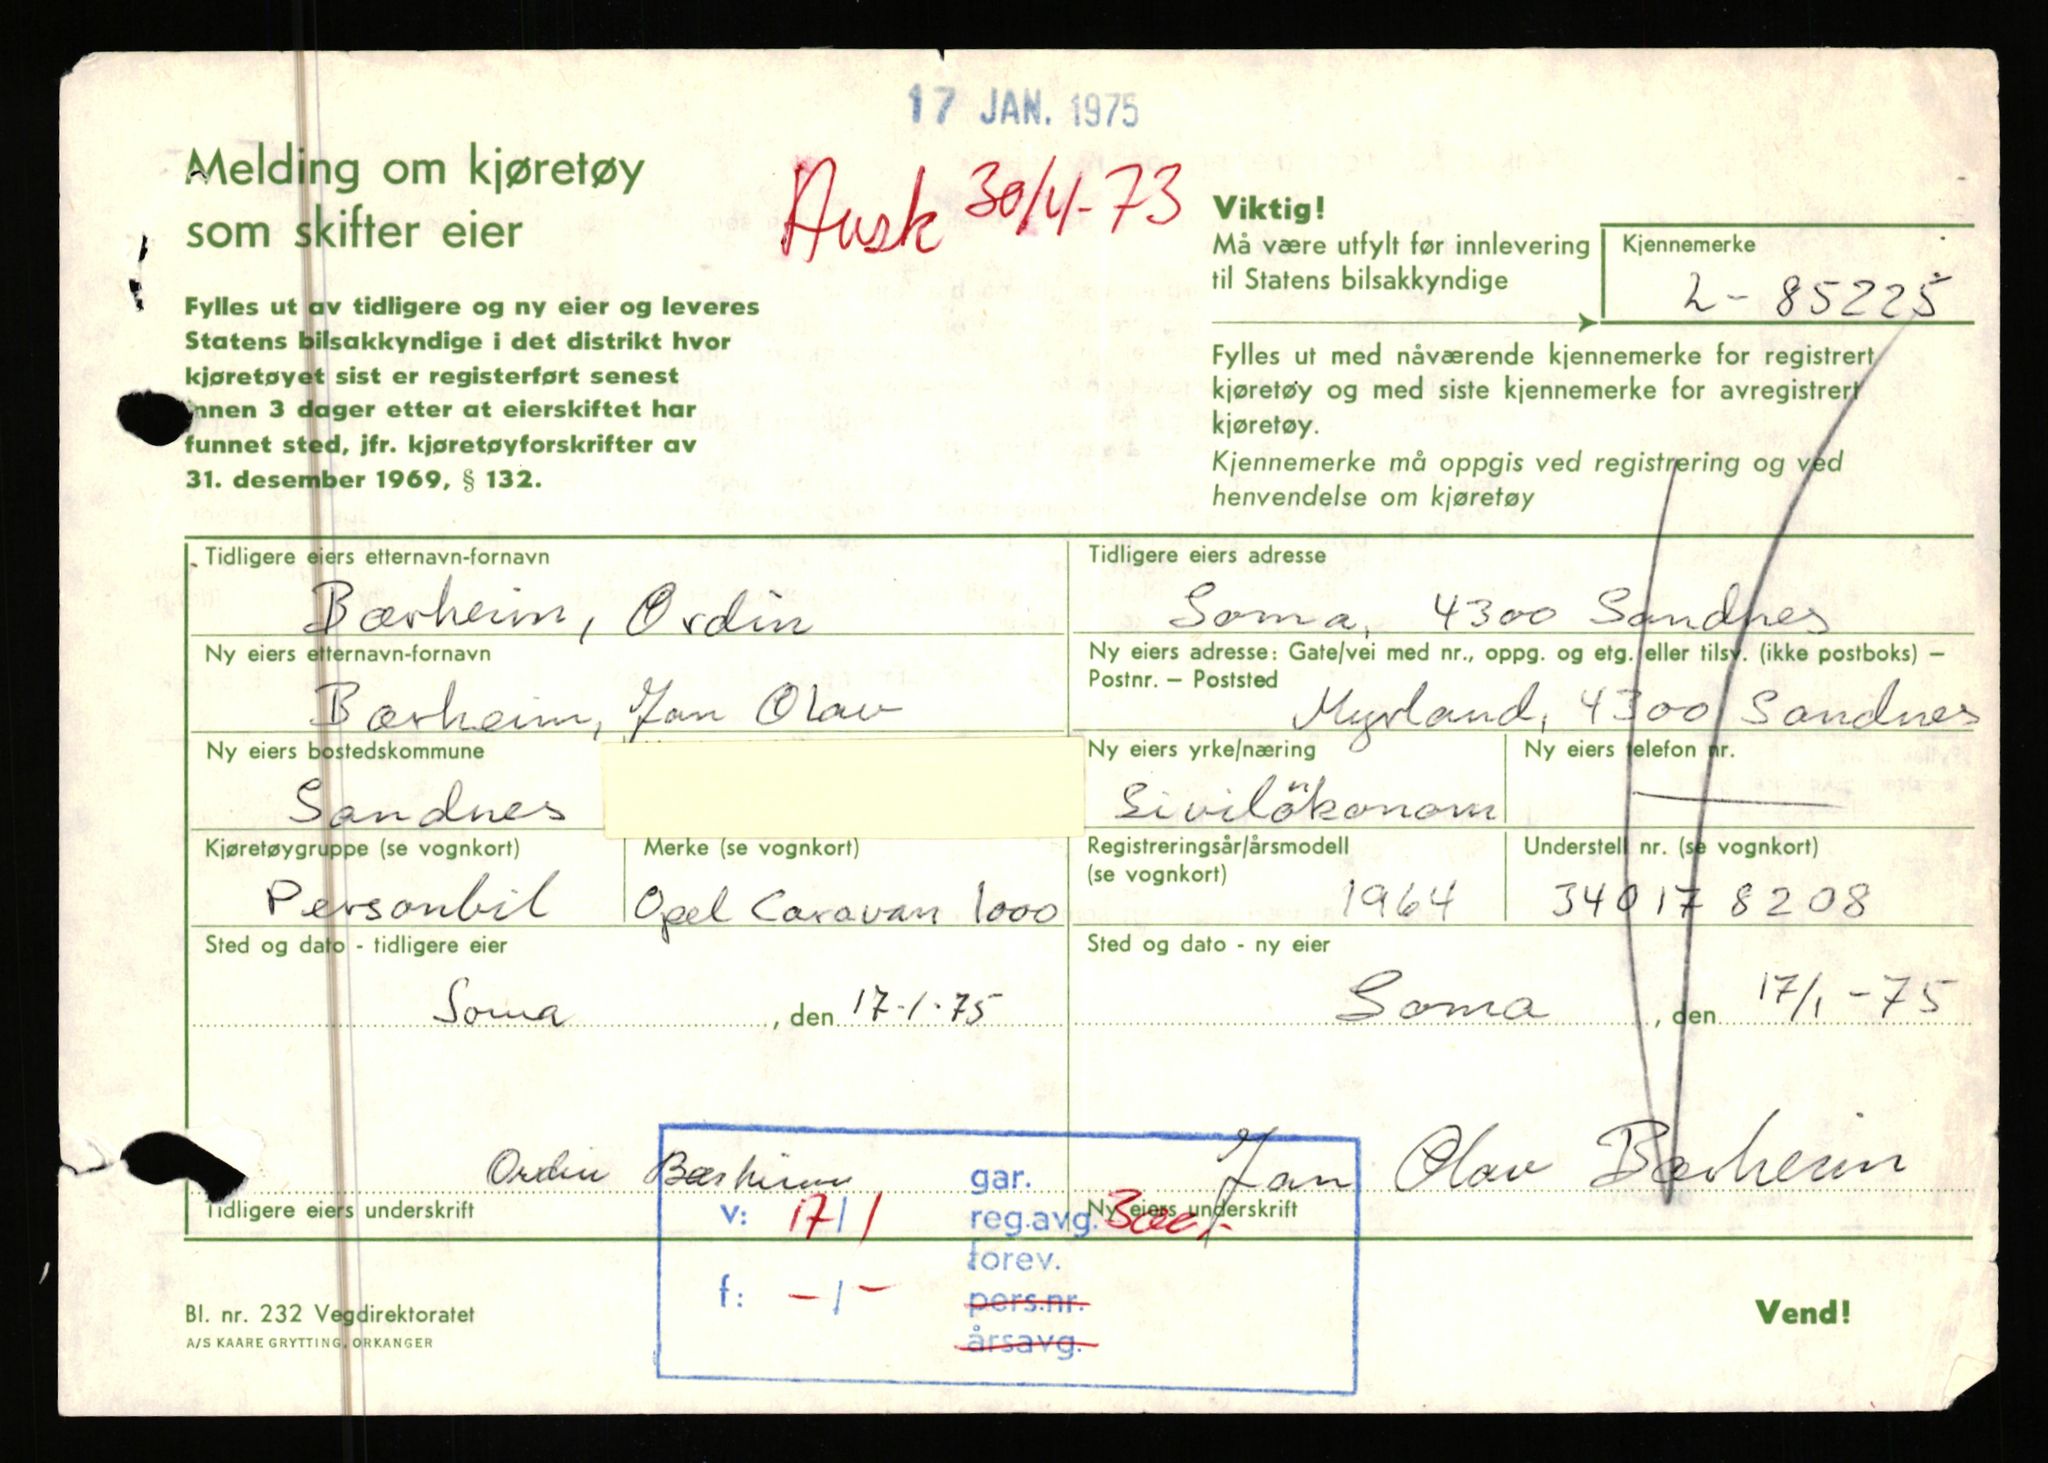 17 JAN. 1975
Melding om kjøretøy
som skifter eier
Avsk 30/4-73
Viktig!
Må være utfylt før innlevering
til Statens bilsakkyndige
Kjennemerke
L - 85225
Fylles ut av tidligere og ny eier og leveres
Statens bilsakkyndige i det distrikt hvor
kjøretøyet sist er registerført senest
innen 3 dager etter at eierskiftet har
funnet sted, jfr. kjøretøyforskrifter av
31. desember 1969, § 132.
Fylles ut med nåværende kjennemerke for registrert
kjøretøy og med siste kjennemerke for avregistrert
kjøretøy.
Kjennemerke må oppgis ved registrering og ved
henvendelse om kjøretøy
Tidligere eiers etternavn-fornavn
Bærheim, Ordin
Tidligere eiers adresse
Soma, 4300 Sandnes
Ny eiers etternavn-fornavn
Bærheim, Jan Olav
Ny eiers adresse: Gate/vei med nr., oppg. og etg. eller tilsv. (ikke postboks) –
Postnr. – Poststed
Myrland, 4300 Sandnes
Ny eiers bostedskommune
Sandnes
Ny eiers yrke/næring
Siviløkonom
Ny eiers telefon nr.
Kjøretøygruppe (se vognkort)
Personbil
Merke (se vognkort)
Opel Caravan 1000
Registreringsår/årsmodell
(se vognkort)
1964
Understell nr. (se vognkort)
34017 8208
Sted og dato - tidligere eier
Soma, den 17-1-75
Sted og dato - ny eier
Soma, den 17/1-75
Ordin Bærheim
Tidligere eiers underskrift
Jan Olav Bærheim
Ny eiers underskrift
v: 17/1
f: -/-
gar.
reg.avg. 300,-
forev.
pers.nr.
årsavg.
Bl. nr. 232 Vegdirektoratet
A/S KAARE GRYTTING, ORKANGER
Vend!